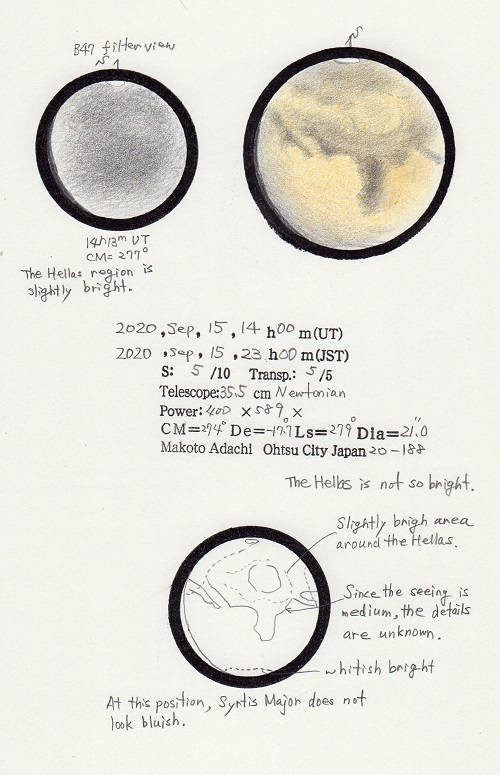 B47 filter view
N
N
14h13m UT
CM=277°
The Hellas region is
slightly bright.
2020, Sep, 15, 14 h00 m(UT)
2020, Sep, 15, 23 h00 m(JST)
S: 5 /10 Transp.: 5/5
Telescope:35.5 cm Newtonian
Power: 400 ×589 ×
CM=274° De=-17.7° Ls=279° Dia=21.0"
Makoto Adachi Ohtsu City Japan 20-188
The Hellas is not so bright.
Slightly brigh area
around the Hellas.
Since the seeing is
medium, the details
are unknown.
whitish bright
At this position, Syrtis Major does not
look bluish.